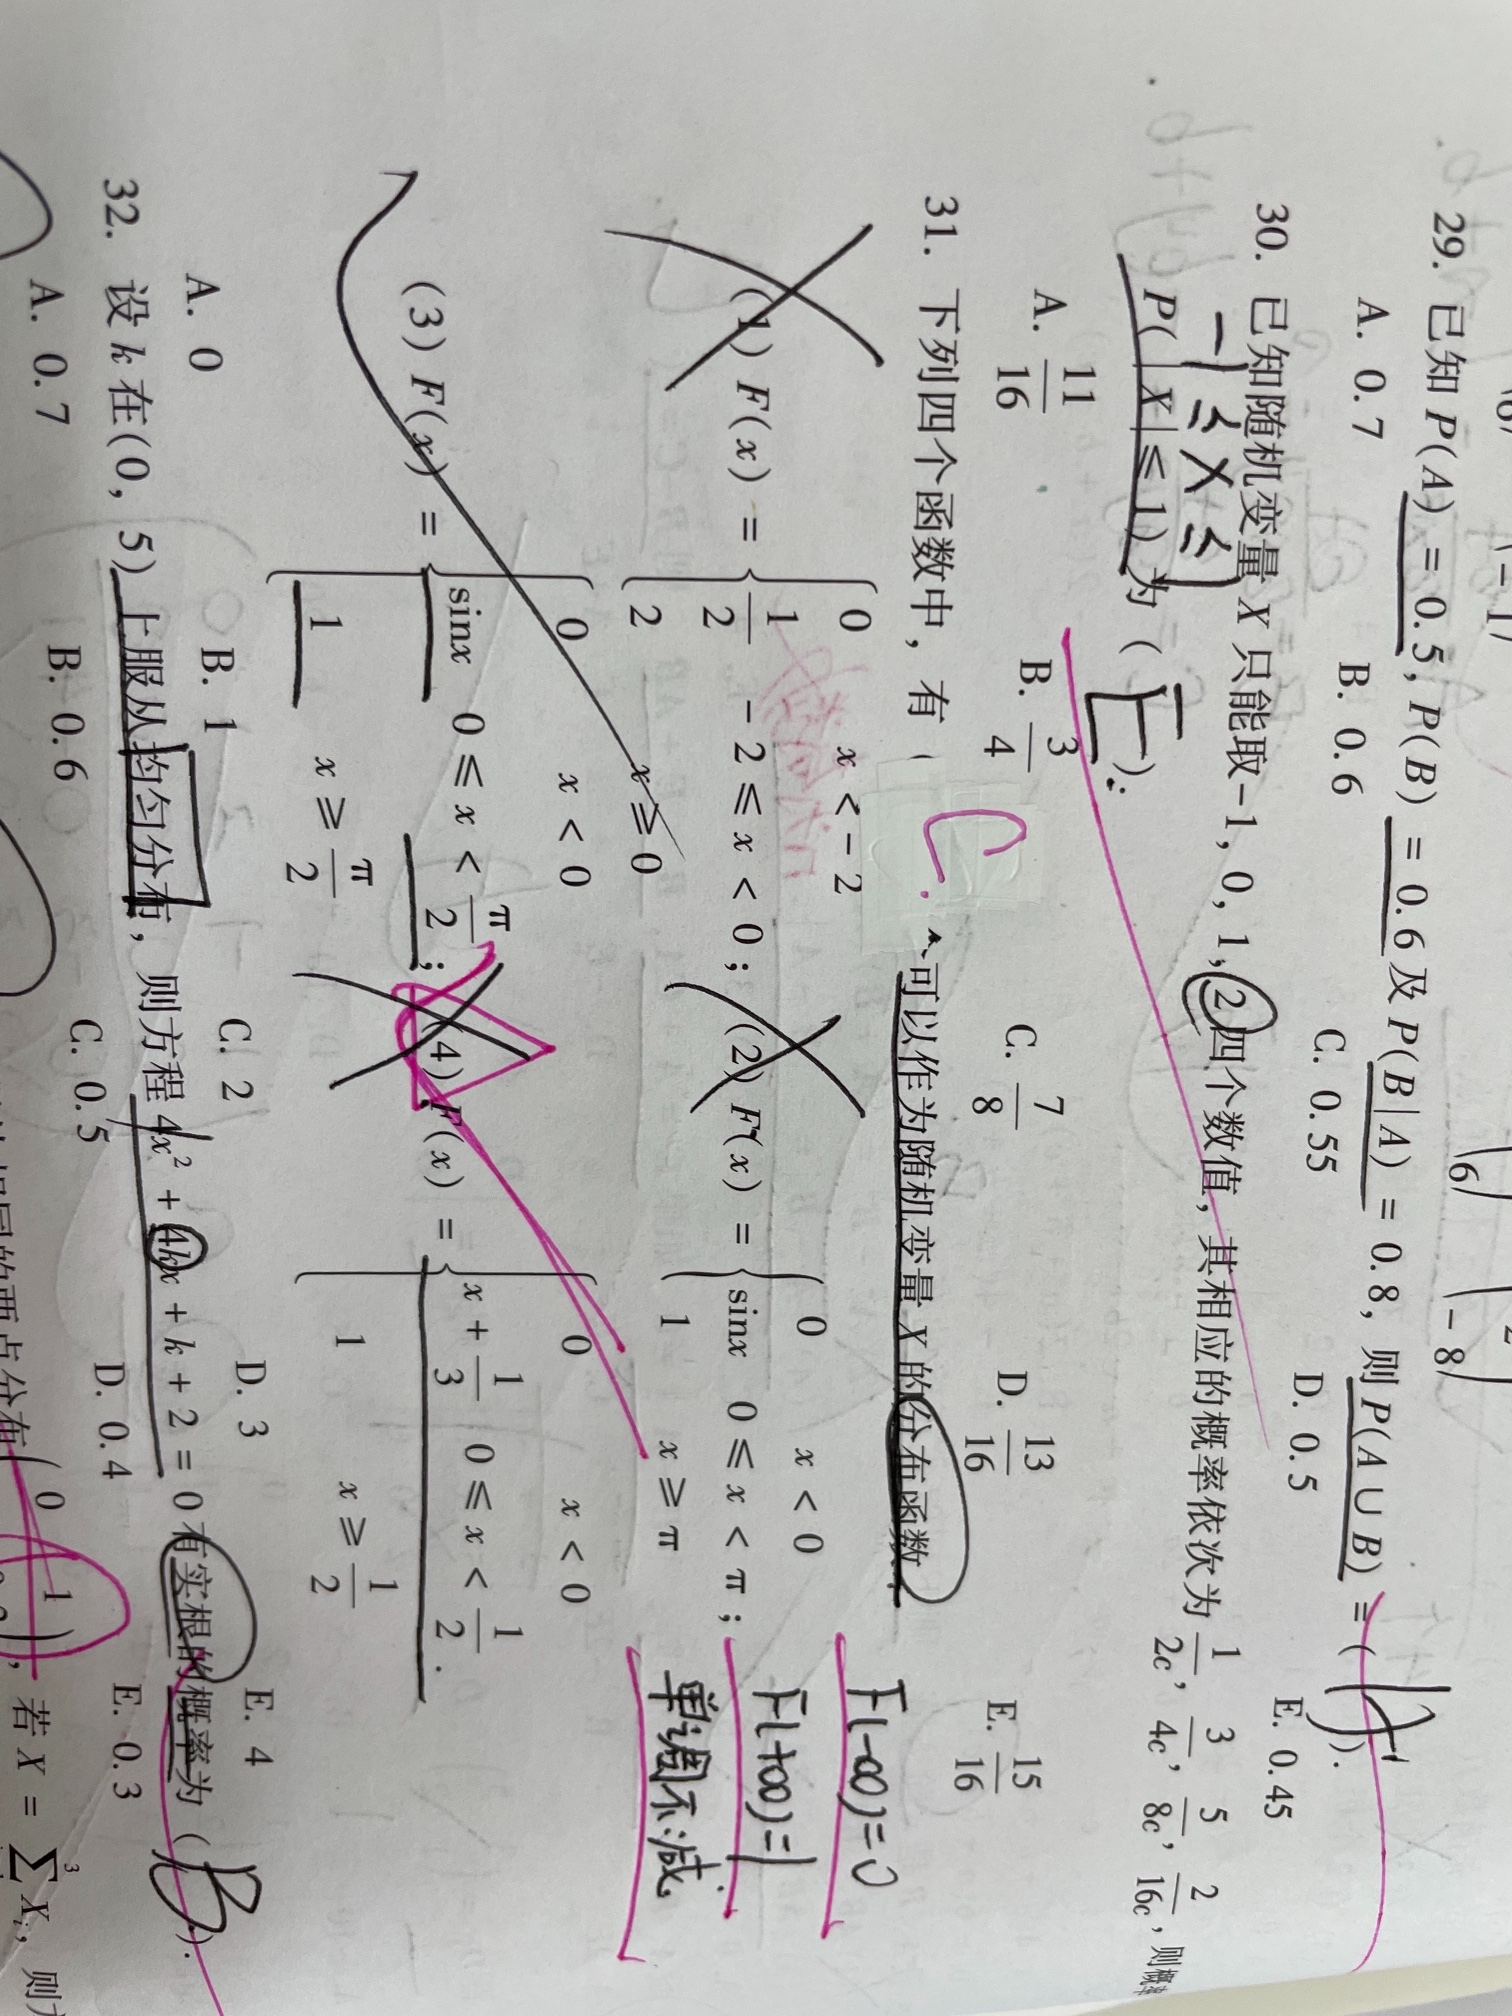 29. 已知 P(A) = 0.5, P(B) = 0.6 及 P(B|A) = 0.8, 则 P(A∪B) = (A).
A. 0.7 B. 0.6 C. 0.55 D. 0.5 E. 0.45
30. 已知随机变量 X 只能取-1, 0, 1, 2四个数值, 其相应的概率依次为 1/2c, 3/4c, 5/8c, 2/16c, 则概率
-1≤X≤1
P(|X|≤1)为(E).
A. 11/16 B. 3/4 C. 7/8 D. 13/16 E. 15/16
31. 下列四个函数中, 有( C. 可以作为随机变量 X 的分布函数.
(1) F(x) = { 0 x < -2
1/2 -2 ≤ x < 0 ;
2 x ≥ 0
(2) F(x) = { 0 x < 0
sinx 0 ≤ x < π ;
1 x ≥ π
F(-∞)=0
F(+∞)=1
单调不减.
(3) F(x) = { 0 x < 0
sinx 0 ≤ x < π/2 ;
1 x ≥ π/2
(4) F(x) = { 0 x < 0
x + 1/3 0 ≤ x < 1/2 .
1 x ≥ 1/2
A. 0 B. 1 C. 2 D. 3 E. 4
32. 设 k 在(0, 5)上服从均匀分布, 则方程 4x² + 4kx + k + 2 = 0 有实根的概率为(B).
A. 0.7 B. 0.6 C. 0.5 D. 0.4 E. 0.3
的两点分布( 0 1 ), 若 X = ∑ 3 Xᵢ, 则